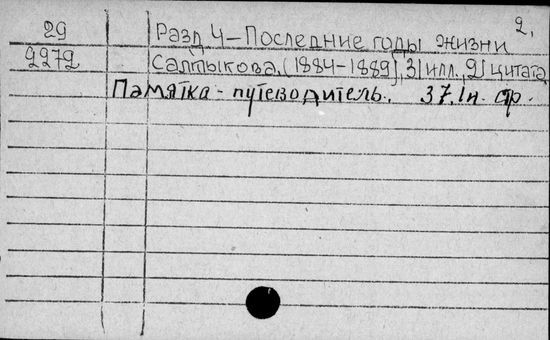 2.
29 Разд 4 - Последние годы жизни
2272 Салтыкова. (1884-1889), 31 илл., 21 цитата
Памятка - путеводитель. 37. 1 п. стр.